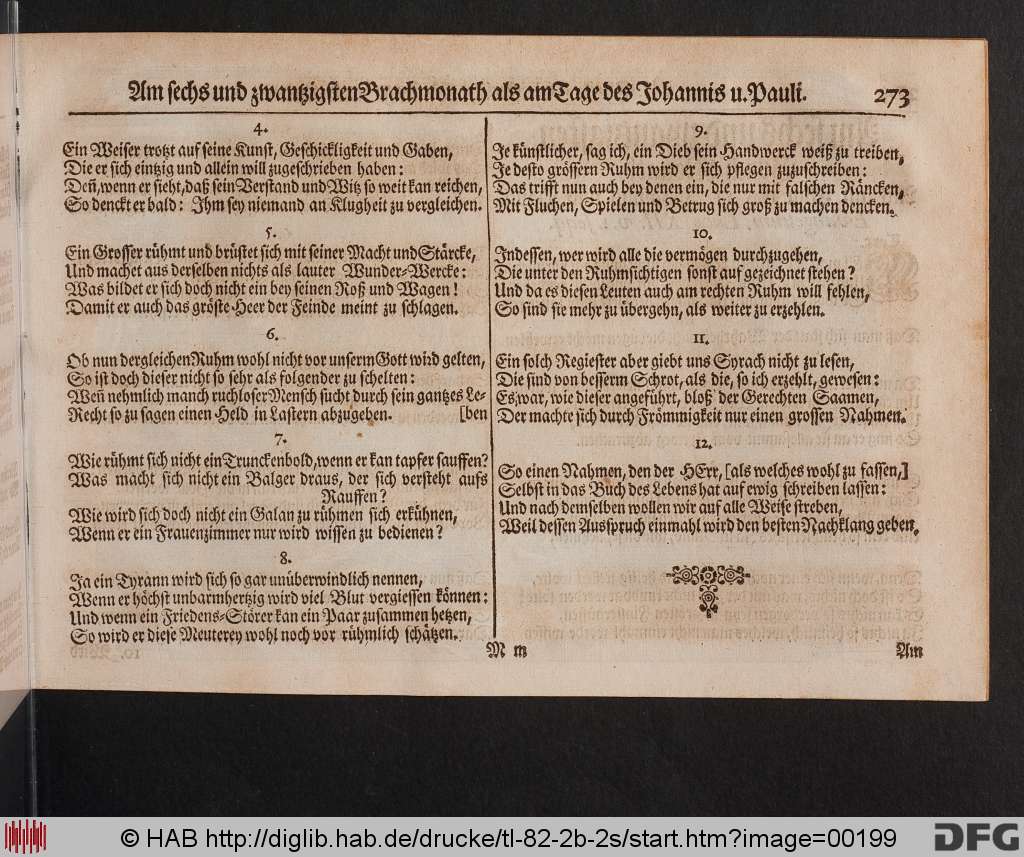 Am sechs und zwantzigsten Brachmonath als am Tage des Johannis u. Pauli. 273
4.
Ein Weiser trotzt auf seine Kunst, Geschickligkeit und Gaben,
Die er sich eintzig und allein will zugeschrieben haben:
Deñ, wenn er sieht, daß sein Verstand und Witz so weit kan reichen,
So denckt er bald: Ihm sey niemand an Klugheit zu vergleichen.
5.
Ein Grosser rühmt und brüstet sich mit seiner Macht und Stärcke,
Und machet aus derselben nichts als lauter Wunder-Wercke:
Was bildet er sich doch nicht ein bey seinen Roß und Wagen!
Damit er auch das gröste Heer der Feinde meint zu schlagen.
6.
Ob nun dergleichen Ruhm wohl nicht vor unserm Gott wird gelten,
So ist doch dieser nicht so sehr als folgender zu schelten:
Weñ nehmlich manch ruchloser Mensch sucht durch sein gantzes Le-
Recht so zu sagen einen Held in Lastern abzugeben. [ben
7.
Wie rühmt sich nicht ein Trunckenbold, wenn er kan tapfer sauffen?
Was macht sich nicht ein Balger draus, der sich versteht aufs
Rauffen?
Wie wird sich doch nicht ein Galan zu rühmen sich erkühnen,
Wenn er ein Frauenzimmer nur wird wissen zu bedienen?
8.
Ja ein Tyrann wird sich so gar unüberwindlich nennen,
Wenn er höchst unbarmhertzig wird viel Blut vergiessen können:
Und wenn ein Friedens-Störer kan ein Paar zusammen hetzen,
So wird er diese Meuterey wohl noch vor rühmlich schätzen.
9.
Je künstlicher, sag ich, ein Dieb sein Handwerck weiß zu treiben,
Je desto grössern Ruhm wird er sich pflegen zuzuschreiben:
Das trifft nun auch bey denen ein, die nur mit falschen Räncken,
Mit Fluchen, Spielen und Betrug sich groß zu machen dencken.
10.
Indessen, wer wird alle die vermögen durchzugehen,
Die unter den Ruhmsichtigen sonst auf gezeichnet stehen?
Und da es diesen Leuten auch am rechten Ruhm will fehlen,
So sind sie mehr zu übergehn, als weiter zu erzehlen.
11.
Ein solch Regiester aber giebt uns Syrach nicht zu lesen,
Die sind von besserm Schrot, als die, so ich erzehlt, gewesen:
Es war, wie dieser angeführt, bloß der Gerechten Saamen,
Der machte sich durch Frömmigkeit nur einen grossen Nahmen.
12.
So einen Nahmen, den der HErr, [als welches wohl zu fassen,]
Selbst in das Buch des Lebens hat auf ewig schreiben lassen:
Und nach demselben wollen wir auf alle Weise streben,
Weil dessen Ausspruch einmahl wird den besten Nachklang geben.
M m
Am
© HAB http://diglib.hab.de/drucke/tl-82-2b-2s/start.htm?image=00199
DFG